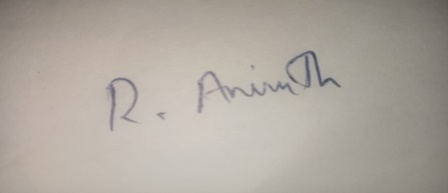 R. Aniruth